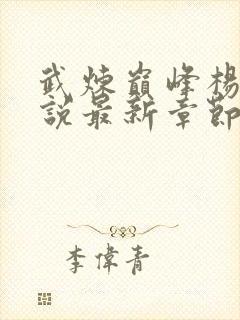 武煉巔峰楊
說最新章節
李偉青